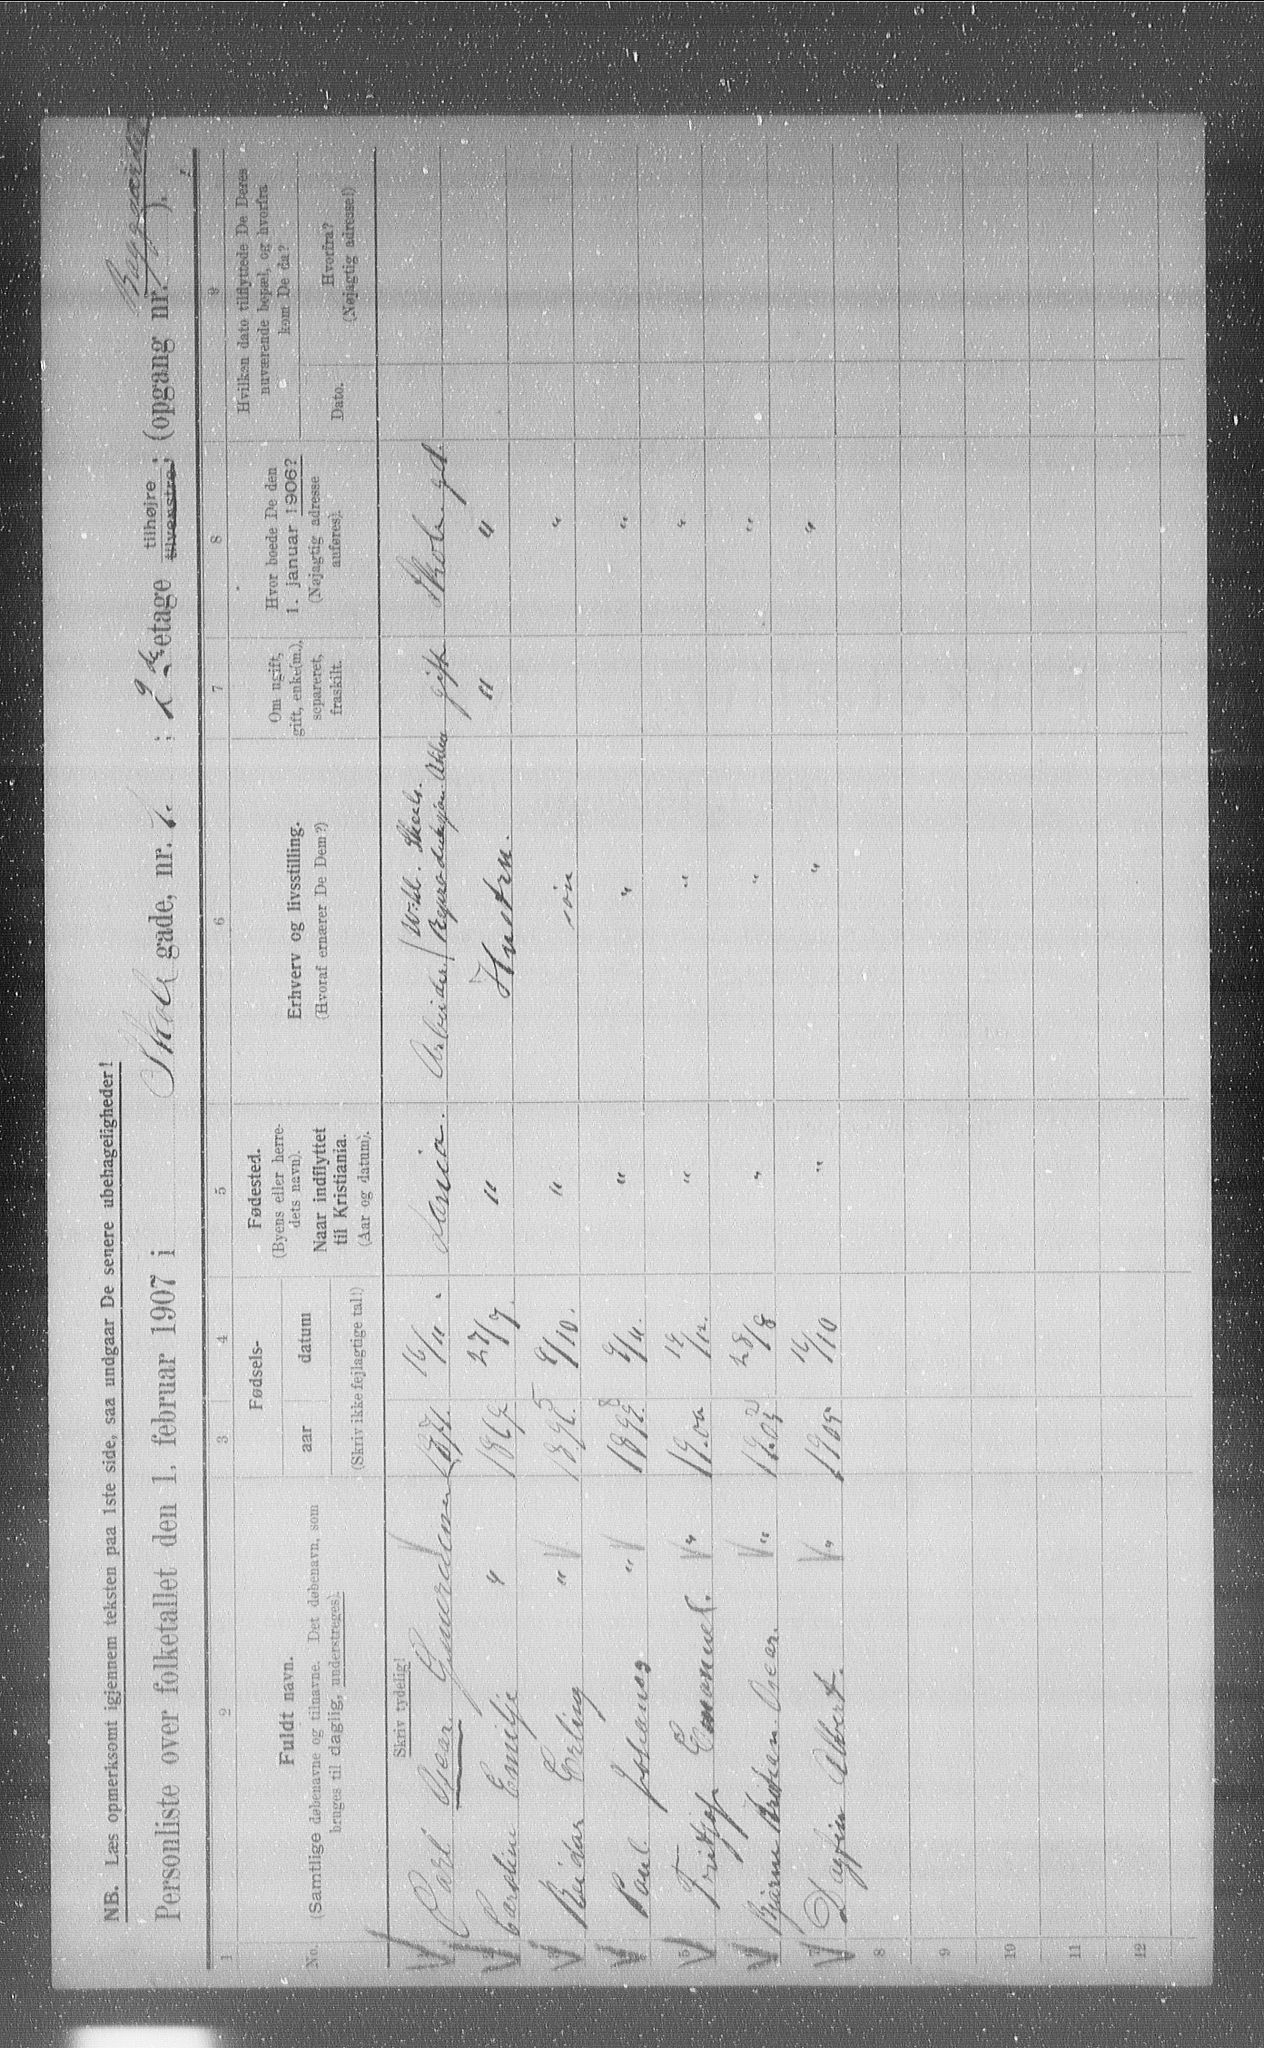 NB. Læs opmerksomt igjennem teksten paa 1ste side, saa undgaar De senere ubehageligheder!
Baggaarden
Personliste over folketallet den 1. februar 1907 i Skole gade, nr. 7. ; 2den etage tilhøjre ; tilvenstre ; (opgang nr. ).
1 2 3 4 5 6 7 8 9
No.
Fuldt navn.
(Samtlige døbenavne og tilnavne. Det døbenavn, som
bruges til daglig, understreges).
Fødsels-
aar datum
(Skriv ikke fejlagtige tal!)
Fødested.
(Byens eller herre-
dets navn).
Naar indflyttet
til Kristiania.
(Aar og datum).
Erhverv og livsstilling.
(Hvoraf ernærer De Dem?)
Om ugift,
gift, enke(m.),
separeret,
fraskilt.
Hvor boede De den
1. januar 1906?
(Nøjagtig adresse
anføres).
Hvilken dato tilflyttede De Deres
nuværende bopæl, og hvorfra
kom De da?
Dato.
Hvorfra?
(Nøjagtig adresse!)
Skriv tydelig!
Carl Oscar 16/11. Arbeider gift
Caroline Emilje " 27/7. " Hustru. " "
3 Reidar Erling " 9/10. " søn "
4 Paul Johannes " 9/11. " " "
5 Fridtjof Emanuel. " 19.00 19/12. " " "
6 Bjarne Oscar. " 28/8 " " "
7 Dagfin Albert. " 1905 16/10 " " "
8
9
10
11
12